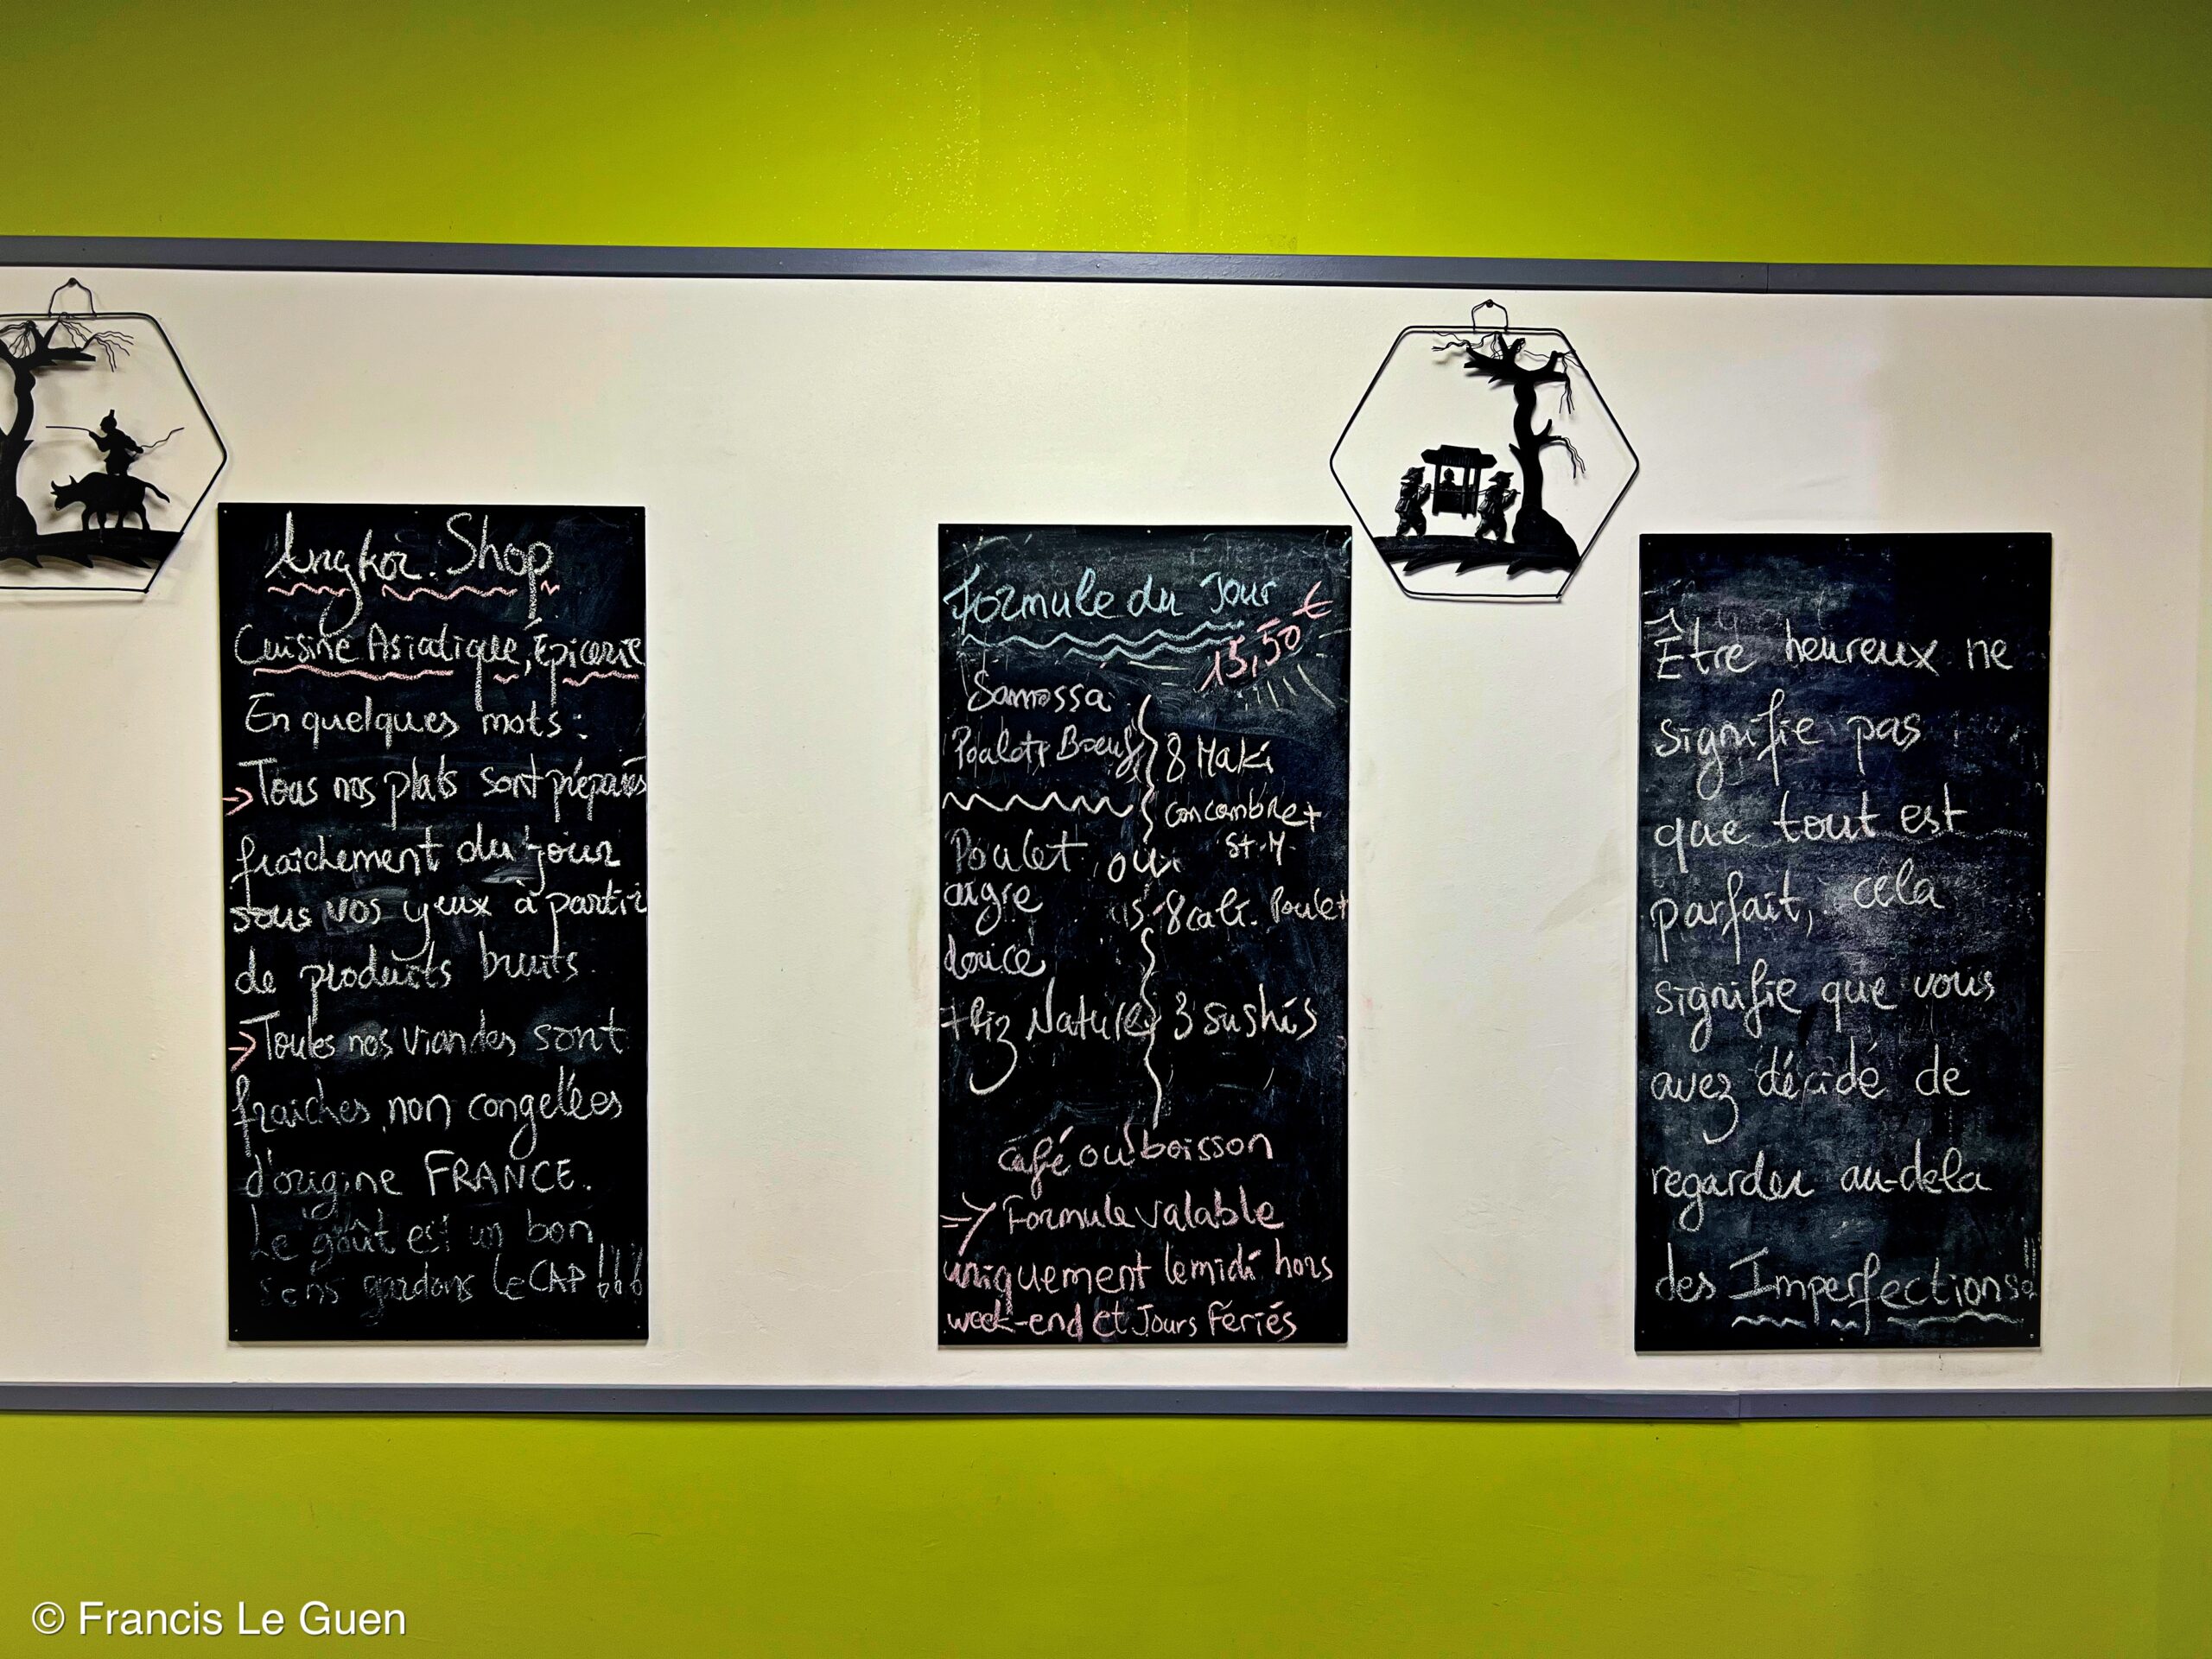 Angkor Shop
Cuisine Asiatique, Épicerie
En quelques mots :
→ Tous nos plats sont préparés
fraîchement du jour
sous vos yeux à partir
de produits bruts.
→ Toutes nos viandes sont
fraiches, non congelées
d'origine FRANCE.
Le goût est un bon
sens gardons le CAP !!!
Formule du Jour
15,50 €
Samossa
Poulet Boeuf
Poulet
aigre
douce
+ Riz Nature
ou
8 Maki
Concombre +
St-M.
8 cali. Poulet
3 sushis
café ou boisson
=> Formule valable
uniquement le midi hors
week-end et Jours Fériés
Être heureux ne
signifie pas
que tout est
parfait, cela
signifie que vous
avez décidé de
regarder au-dela
des Imperfections
© Francis Le Guen